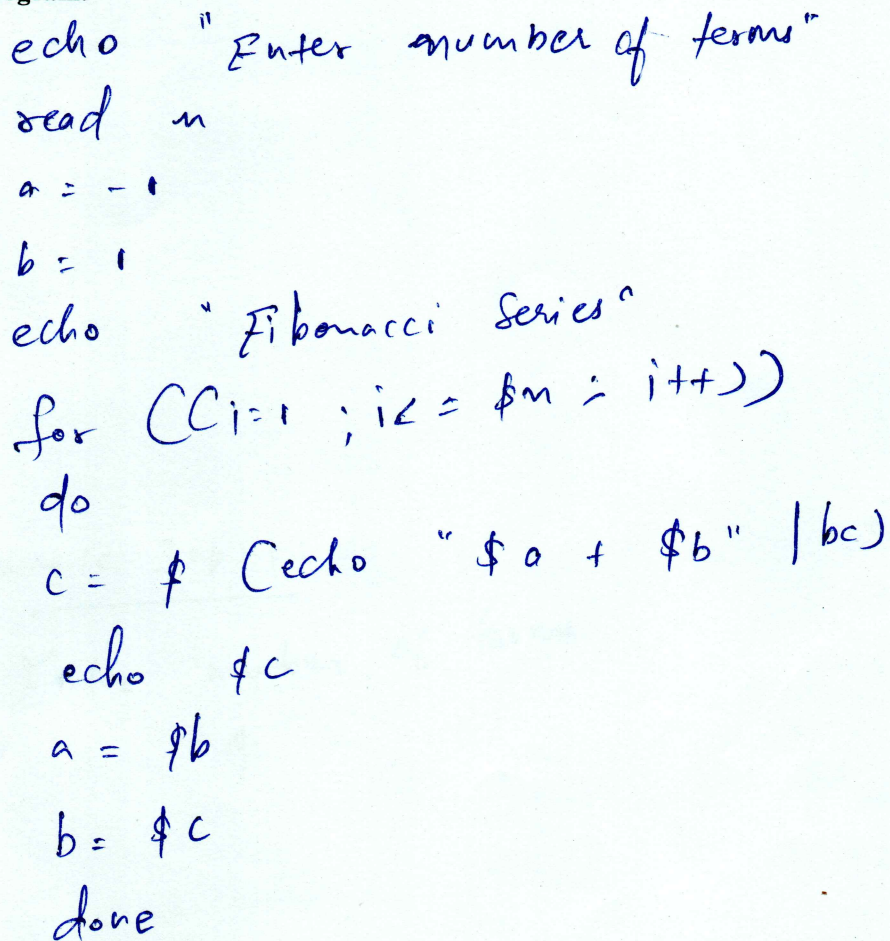 echo "Enter number of terms"
read n
a = -1
b = 1
echo "Fibonacci Series"
for ((i=1 ; i<= $n ; i++))
do
c = $ (echo "$a + $b" | bc)
echo $c
a = $b
b = $c
done